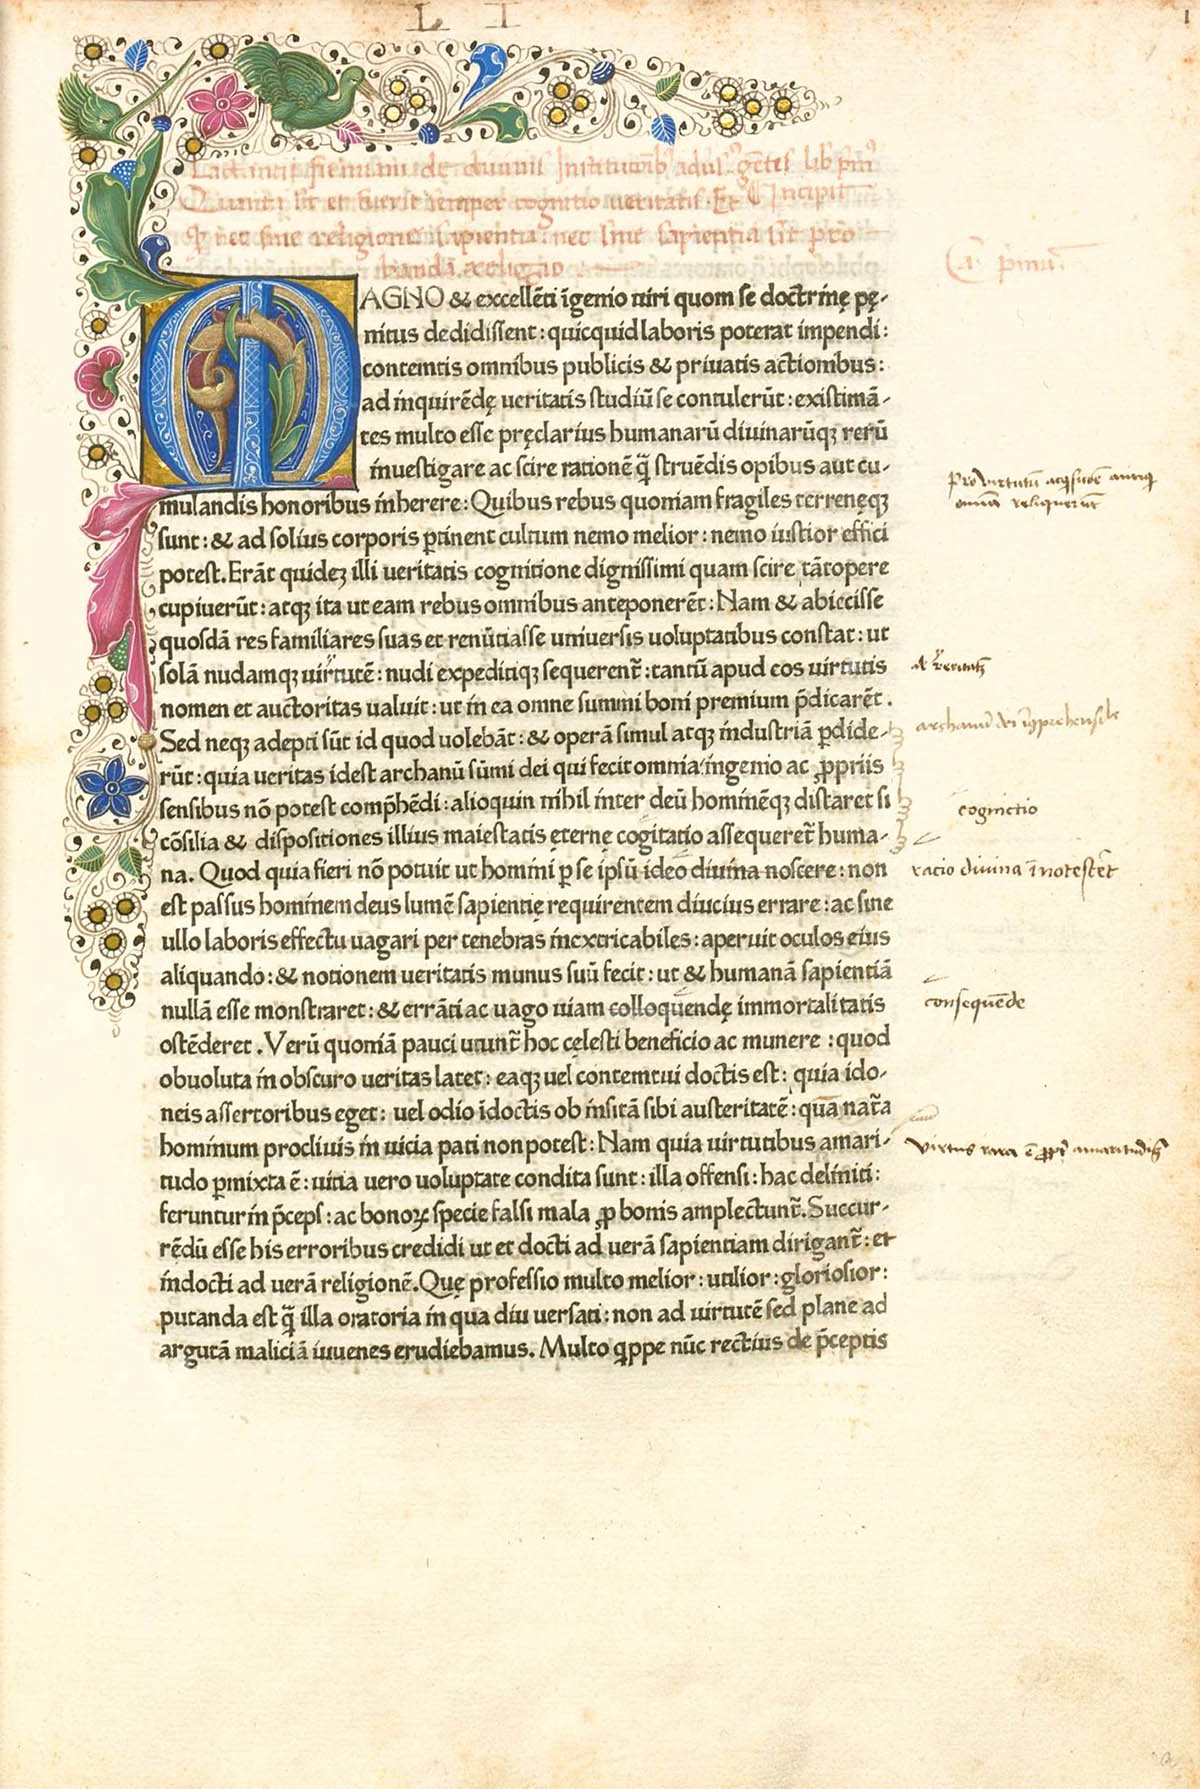 L I
1
Lactantii firmiani de diuinis Institutōib' adusʳ gētes lib' prim'
Quanti sit et fuerit semper cognitio ueritatis. Et Incipit
qͥ nec sine religione sapientia: nec sine sapientia sit pro
banda religio
Ca. primū.
MAGNO & excellēti īgenio uiri quom se doctrinę pę-
nitus dedidissent: quicquid laboris poterat impendi:
contemtis omnibus publicis & priuatis actionibus:
ad inquirēdę ueritatis studiū se contulerūt: existimā-
tes multo esse pręclarius humanarū diuinarūqꝫ rerū
inuestigare ac scire rationē q̄ struēdis opibus aut cu-
mulandis honoribus inherere: Quibus rebus quoniam fragiles terrenęqꝫ
sunt: & ad solius corporis ꝑtinent cultum nemo melior: nemo iustior effici
potest. Erāt quideꝫ illi ueritatis cognitione dignissimi quam scire tātopere
cupiuerūt: atqꝫ ita ut eam rebus omnibus anteponerēt: Nam & abiecisse
quosdā res familiares suas et renūtiasse uniuersis uoluptatibus constat: ut
solā nudamqꝫ uirtutē: nudi expeditiqꝫ sequerent᷑: tantū apud eos uirtutis
nomen et auctoritas ualuit: ut in ea omne summi boni premium p̄dicarēt.
Sed neqꝫ adepti sūt id quod uolebāt: & operā simul atqꝫ industriā ꝑdide-
rūt: quia ueritas idest archanū sūmi dei qui fecit omnia ingenio ac ꝓpriis
sensibus nō potest comp̄hēdi: alioquin nihil inter deū hominēqꝫ distaret si
cōsilia & dispositiones illius maiestatis ęternę cogitatio assequeret᷑ huma-
na. Quod quia fieri nō potuit ut homini ꝑ se ipsū ideo diuina noscere: non
est passus hominem deus lumē sapientię requirentem diucius errare: ac sine
ullo laboris effectu uagari per tenebras inextricabiles: aperuit oculos eius
aliquando: & notionem ueritatis munus suū fecit: ut & humanā sapientiā
nullā esse monstraret: & errāti ac uago uiam colloquendę immortalitatis
ostēderet. Verū quoniā pauci utunt᷑ hoc cęlesti beneficio ac munere: quod
obuoluta in obscuro ueritas latet: eaqꝫ uel contemtui doctis est: quia ido-
neis assertoribus eget: uel odio īdoctis ob insitā sibi austeritatē: quā nat᷑a
hominum procliuis in uicia pati non potest: Nam quia uirtutibus amari-
tudo ꝑmixta ē: uitia uero uoluptate condita sunt: illa offensi: hac deliniti:
feruntur in p̄ceps: ac bonoꝝ specie falsi mala ꝓ bonis amplectunt᷑. Succur-
rēdū esse his erroribus credidi ut et docti ad uerā sapientiam dirigant᷑: et
indocti ad uerā religionē. Quę professio multo melior: utilior: gloriosior:
putanda est q̄ illa oratoria in qua diu uersati: non ad uirtutē sed plane ad
argutā maliciā iuuenes erudiebamus. Multo qͥppe nūc rectius de p̄ceptis
Pro virtutū acqͥsitōe antiqͥ
omnia reliquerūt
archanū dei incōprehensibile
cognictio
racio diuina īnotesceret
consequēde
virtus rara ē ꝓpter amaritudinē